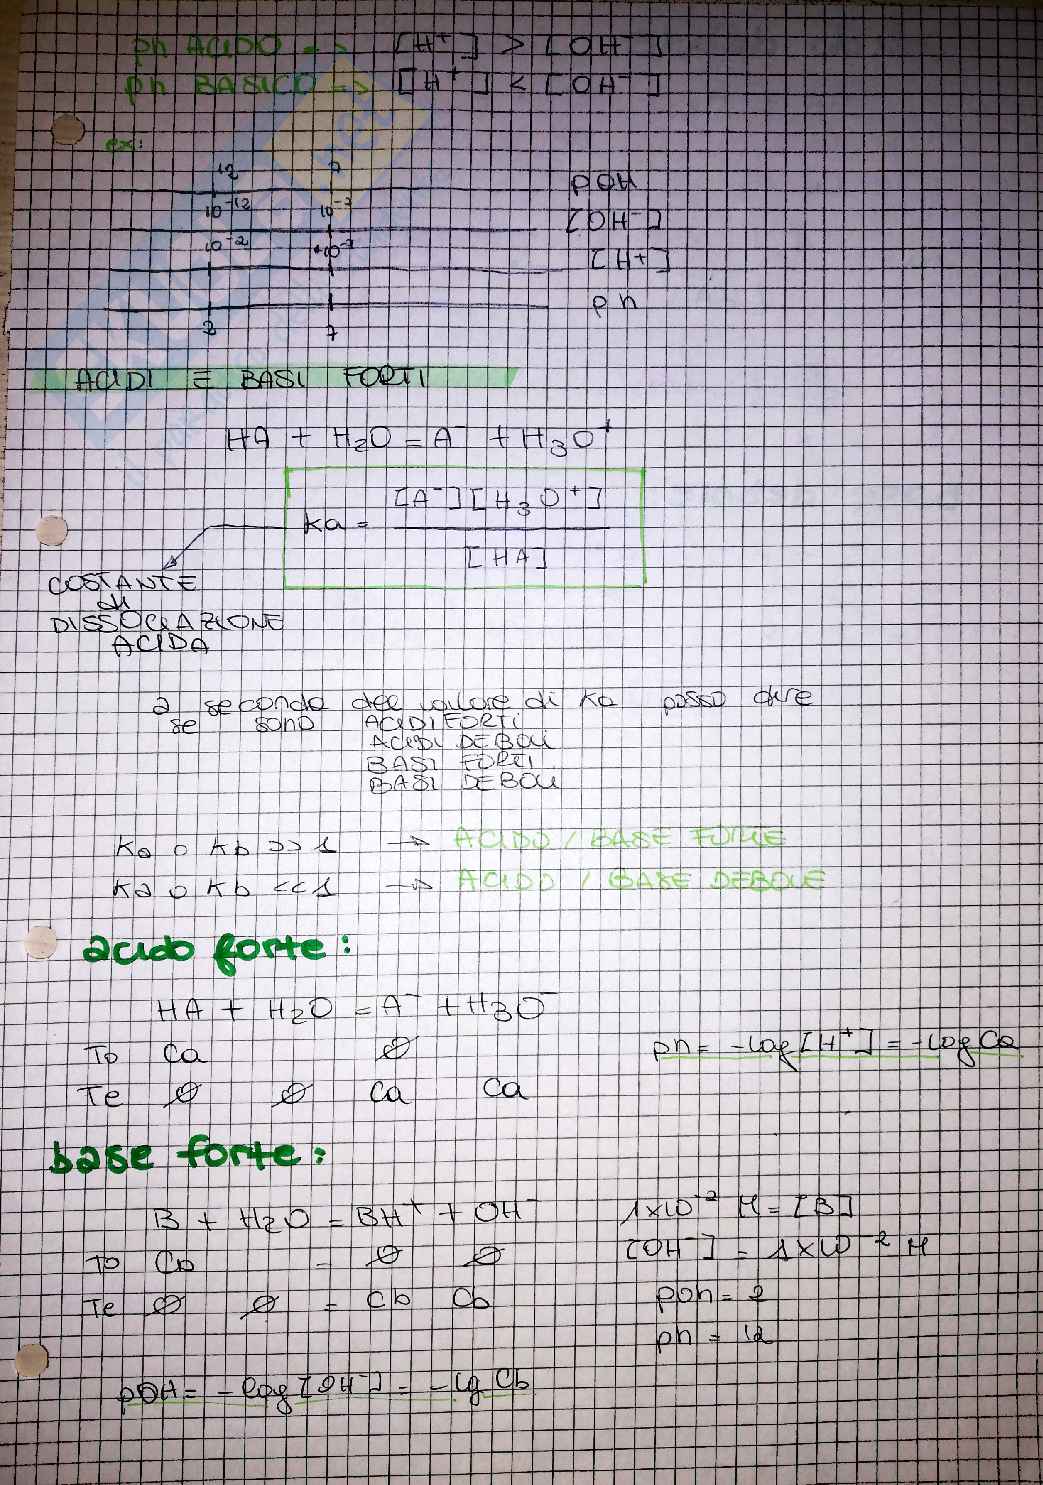 ph ACIDO => [H⁺] > [OH⁻]
ph BASICO => [H⁺] < [OH⁻]
ex:
12 7 pOH
10⁻¹² 10⁻⁷ [OH⁻]
10⁻² 10⁻⁷ [H+]
ph
2 7
ACIDI E BASI FORTI
HA + H₂O = A⁻ + H₃O⁺
ka = [A⁻][H₃O⁺] / [HA]
COSTANTE
di
DISSOCIAZIONE
ACIDA
a seconda del valore di Ka posso dire
se sono ACIDI FORTI
ACIDI DEBOLI
BASI FORTI
BASI DEBOLI
Ka o Kb >> 1 → ACIDO / BASE FORTE
Ka o Kb << 1 → ACIDO / BASE DEBOLE
acido forte:
HA + H₂O = A⁻ + H₃O⁻
To Ca Ø
ph = -log[H⁺] = -log Ca
Te Ø Ø Ca Ca
base forte:
B + H₂O = BH⁺ + OH⁻ 1x10⁻² M = [B]
To Cb - Ø Ø [OH⁻] = 1x10⁻² M
Te Ø Ø = Cb Cb poh = 2
ph = 12
pOH = -log[OH⁻] = -lg Cb